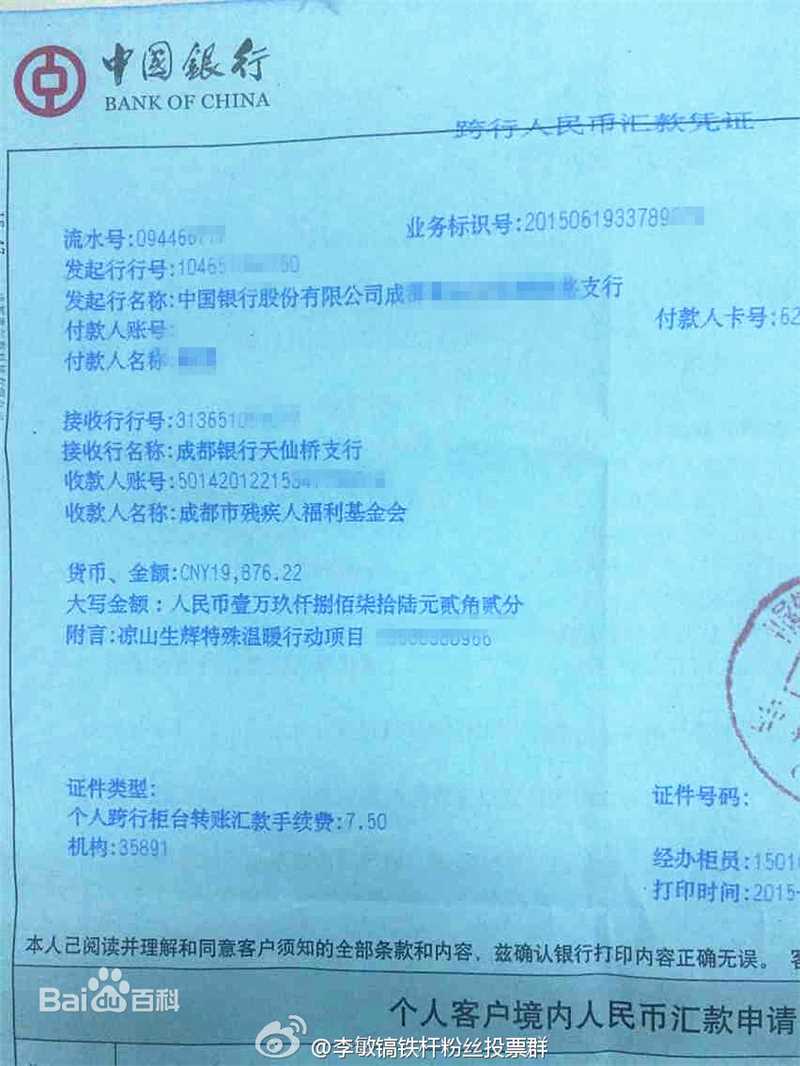 中国银行
BANK OF CHINA
跨行人民币汇款凭证
流水号:09446
业务标识号:2015061933789
发起行行号:10465
发起行名称:中国银行股份有限公司成 支行
付款人账号:
付款人卡号:62
付款人名称
接收行行号:313651
接收行名称:成都银行天仙桥支行
收款人账号:50142012215
收款人名称:成都市残疾人福利基金会
货币、金额:CNY19,876.22
大写金额:人民币壹万玖仟捌佰柒拾陆元贰角贰分
附言:凉山生辉特殊温暖行动项目
证件类型:
证件号码:
个人跨行柜台转账汇款手续费:7.50
机构:35891
经办柜员:1501
打印时间:2015-
本人已阅读并理解和同意客户须知的全部条款和内容，兹确认银行打印内容正确无误。
个人客户境内人民币汇款申请
Bai du 百科
@李敏镐铁杆粉丝投票群